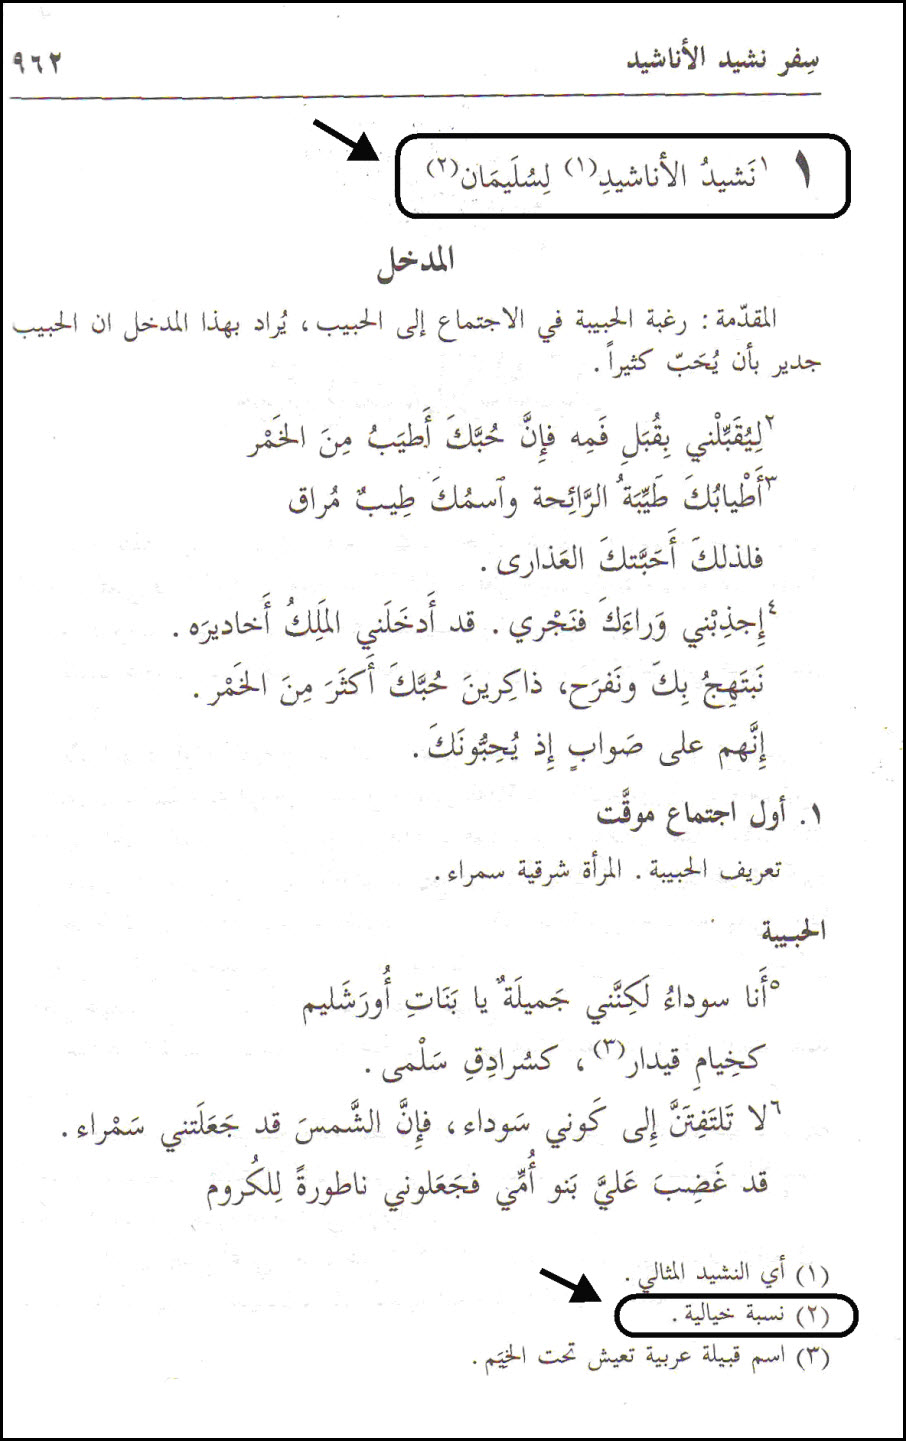 سِفر نشيد الأناشيد ٩٦٢
١ ١نَشيدُ الأناشيدِ(١) لِسُلَيمَان(٢)
المدخل
المقدّمة: رغبة الحبيبة في الاجتماع إلى الحبيب، يُراد بهذا المدخل ان الحبيب
جدير بأن يُحَبّ كثيراً.
٢لِيُقَبِّلْني بِقُبَلِ فَمِه فإِنَّ حُبَّكَ أَطيَبُ مِنَ الخَمْر
٣أَطْيابُكَ طَيِّبَةُ الرَّائِحة وٱسمُكَ طِيبٌ مُراق
فلذلكَ أَحَبَّتكَ العَذارى.
٤إِجذِبْني وَراءَكَ فنَجْري. قد أَدخَلَني المَلِكُ أَخاديرَه.
نَبتَهِجُ بِكَ ونَفرَح، ذاكِرينَ حُبَّكَ أَكثَرَ مِنَ الخَمْر.
إِنَّهم على صَوابٍ إِذ يُحِبُّونَكَ.
١. أول اجتماع موقَّت
تعريف الحبيبة. المرأة شرقية سمراء.
الحبيبة
٥أَنا سوداءُ لَكِنَّني جَميلَةٌ يا بَنَاتِ أُورَشَليم
كخِيامِ قيدار(٣)، كسُرادِقِ سَلْمى.
٦لا تَلتَفِتَنَّ إِلى كَوني سَوداء، فإِنَّ الشَّمسَ قد جَعَلَتني سَمْراء.
قد غَضِبَ عَلَيَّ بَنو أُمِّي فجَعَلوني ناطورةً لِلكُروم
(١) أي النشيد المثالي.
(٢) نسبة خيالية.
(٣) اسم قبيلة عربية تعيش تحت الخِيَم.